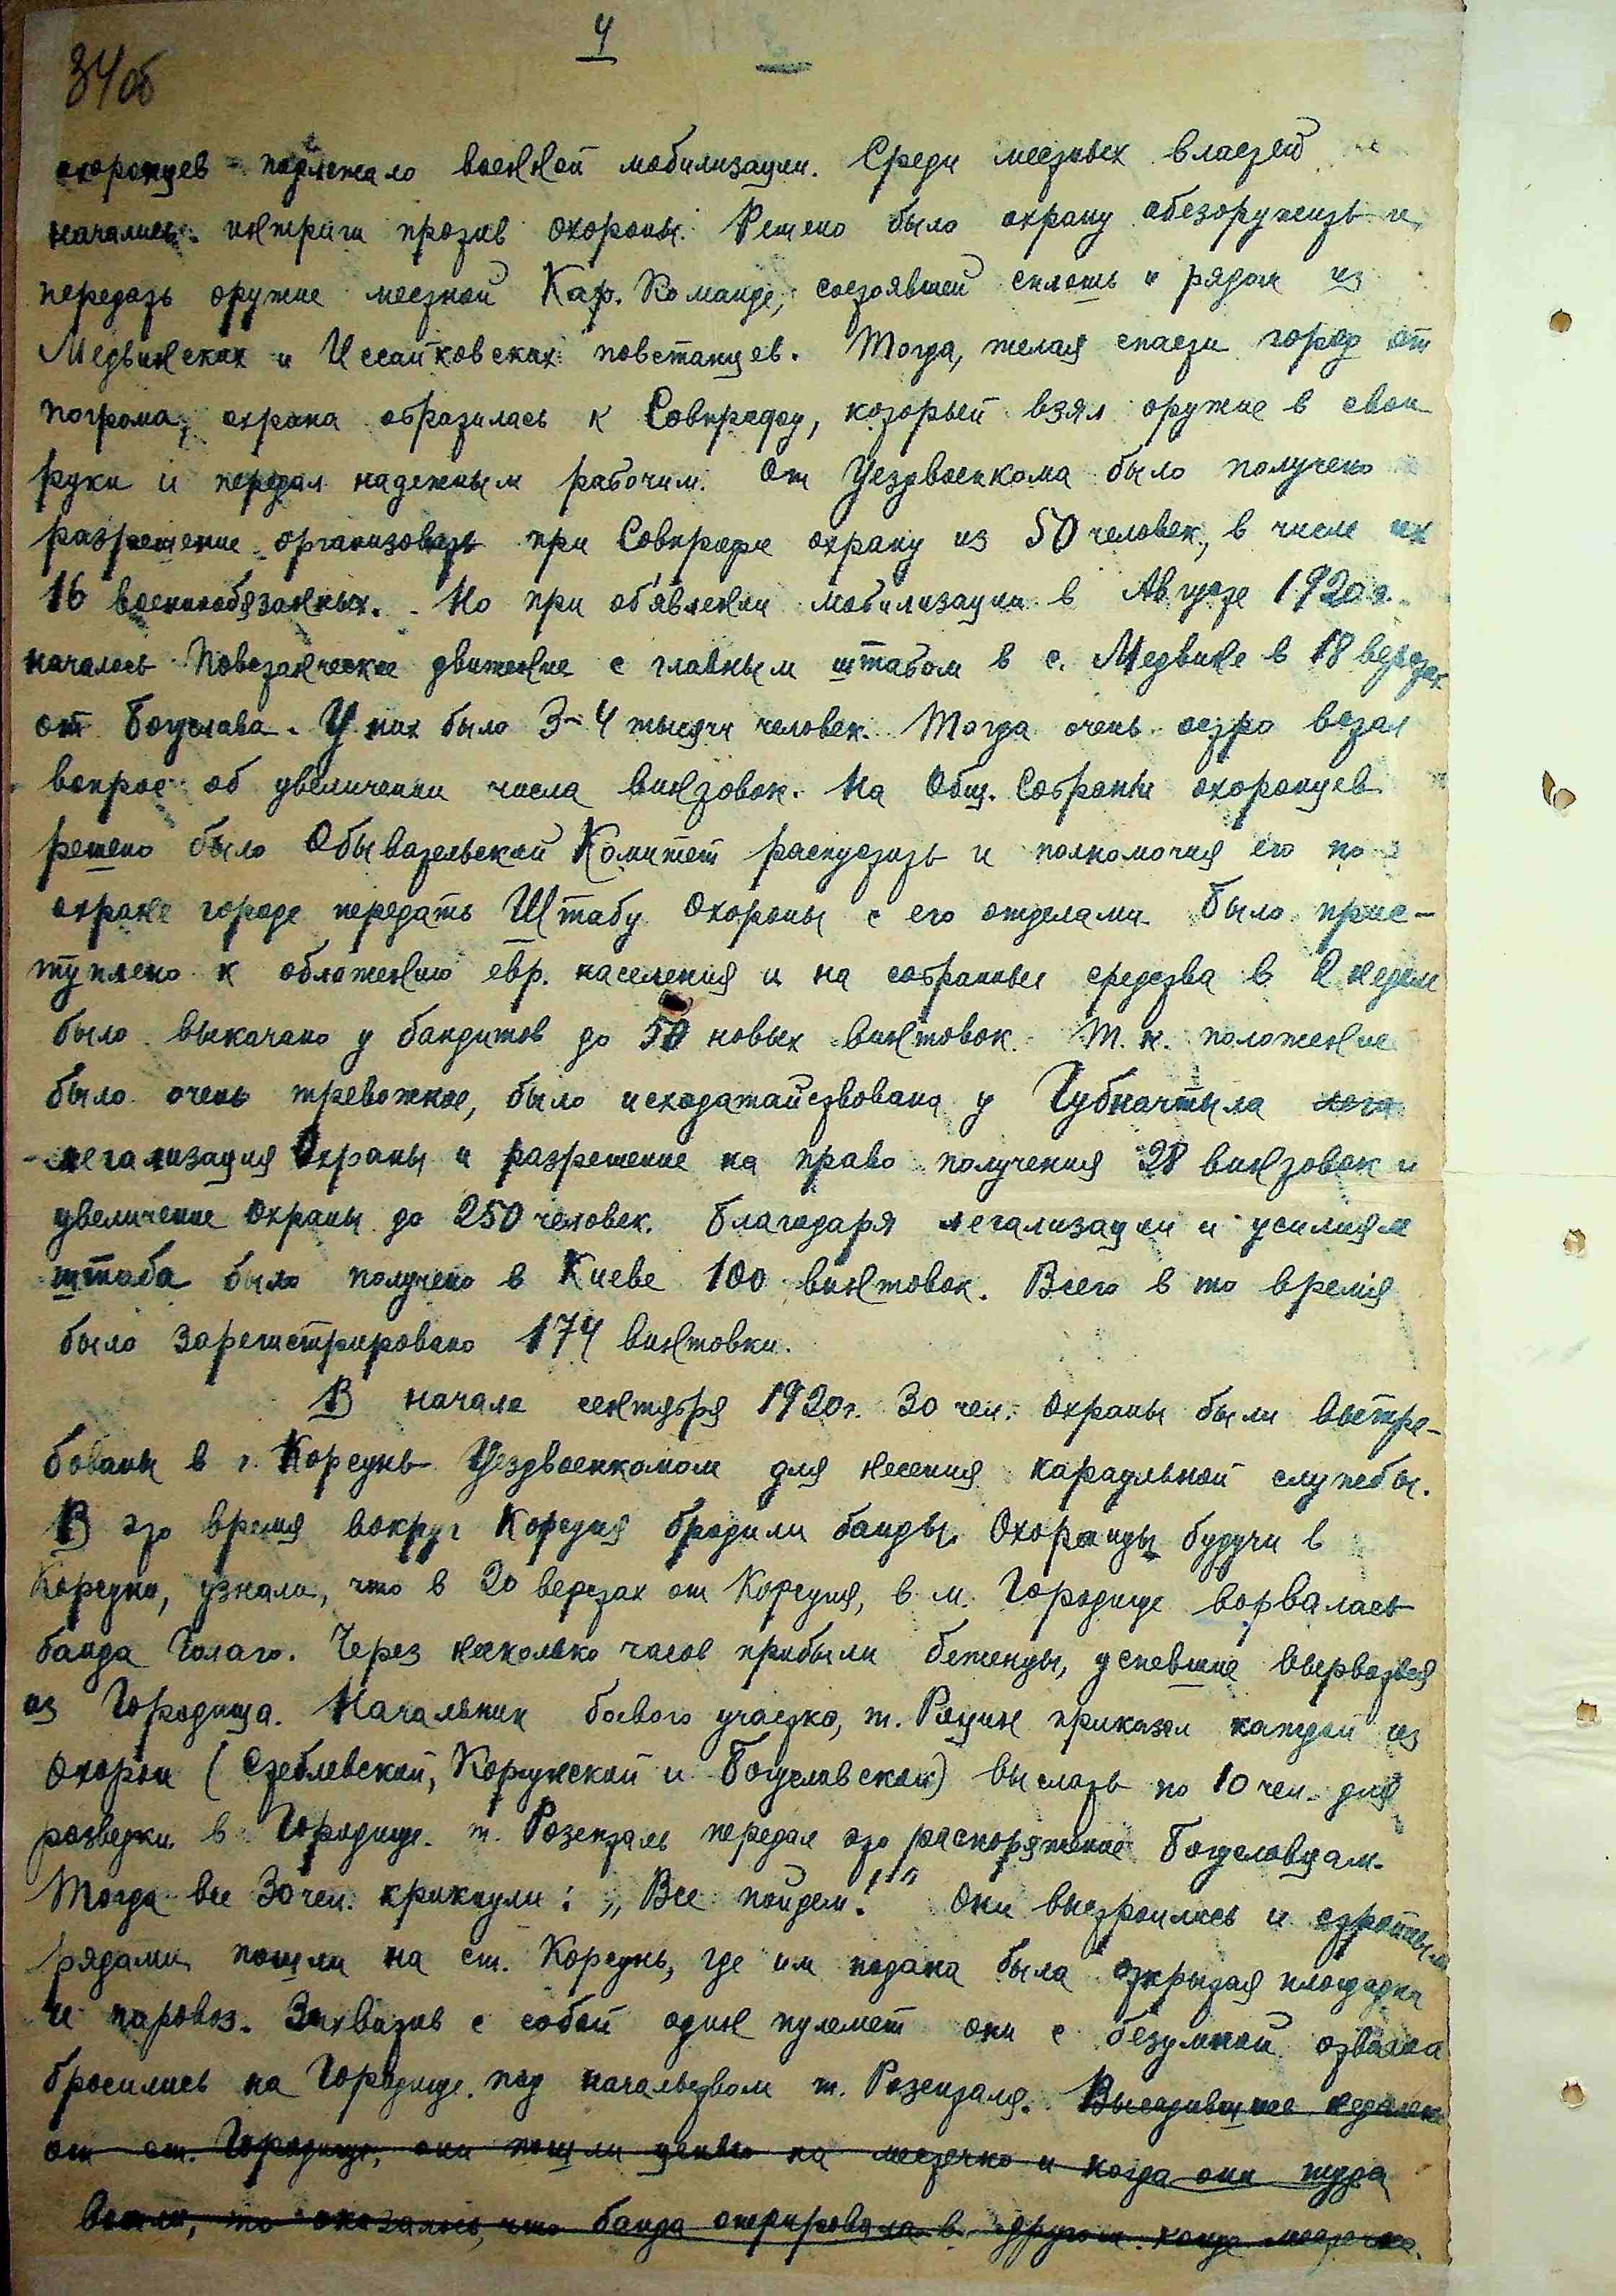 4
34об
охоронцев подлежало военной мобилизации. Среди местных властей
начались интриги против охороны. Решено было охрану обезоружить и
передать оружие местной Кар. Команде, состоявшей сплошь и рядом из
Медвинских и Иссайковских повстанцев. Тогда, желая спасти город от
погрома, охрана обратилась к Совпрофу, который взял оружие в свои
руки и передал надежным рабочим. От Уездвоенкома было получено
разрешение организовать при Совпрофе охрану из 50 человек, в числе их
16 военнообязанных. Но при об'явлении мобилизации в Августе 1920 г.
началось Повстанческое движение с главным штабом в с. Медвине в 18 верстах
от Богуслава. У них было 3-4 тысячи человек. Тогда очень остро встал
вопрос об увеличении числа винтовок. На Общ. Собрании охоронцев
решено было Обывательский Комитет распустить и полномочия его по
охране города передать Штабу Охороны с его отделами. Было прис-
туплено к обложению евр. населения и на собранные средства в 2 недели
было выкачано у бандитов до 50 новых винтовок. Т. к. положение
было очень тревожное, было исходатайствована у Губначтыла лега
легализация Охраны и разрешение на право получения 28 винтовок и
увеличение Охраны до 250 человек. Благодаря легализации и усилиям
штаба было получено в Киеве 100 винтовок. Всего в то время
было зарегистрировано 174 винтовки.
В начале сентября 1920 г. 30 чел. Охраны были вытре-
бованы в г. Корсунь Уездвоенкомом для несения караульной службы.
В это время вокруг Корсуня бродили банды. Охоронцы будучи в
Корсуне, узнали, что в 20 верстах от Корсуня, в м. Городище ворвалась
банда Голаго. Через несколько часов прибыли беженцы, успевшие вырваться
из Городища. Начальник боевого участка, т. приказал каждой из
Охорон (Стеблевской, Корсунской и Богуславской) выслать по 10 чел. для
разведки в Городище. т. Розенталь передал это распоряжение Богуславцам.
Тогда все 30 чел. крикнули: „Все пойдем!" Они выстроились и стройными
рядами пошли на ст. Корсунь, где им подана была открытая площадка
и паровоз. Захватив с собой один пулемет они с безумной отвагой
бросились на Городище под начальством т. Розенталя. Высадившись недалеко
от ст. Городище, они пошли цепью на местечко и когда они туда
вошли, то оказалось, что банда отрисовалась в другом конце местечка.